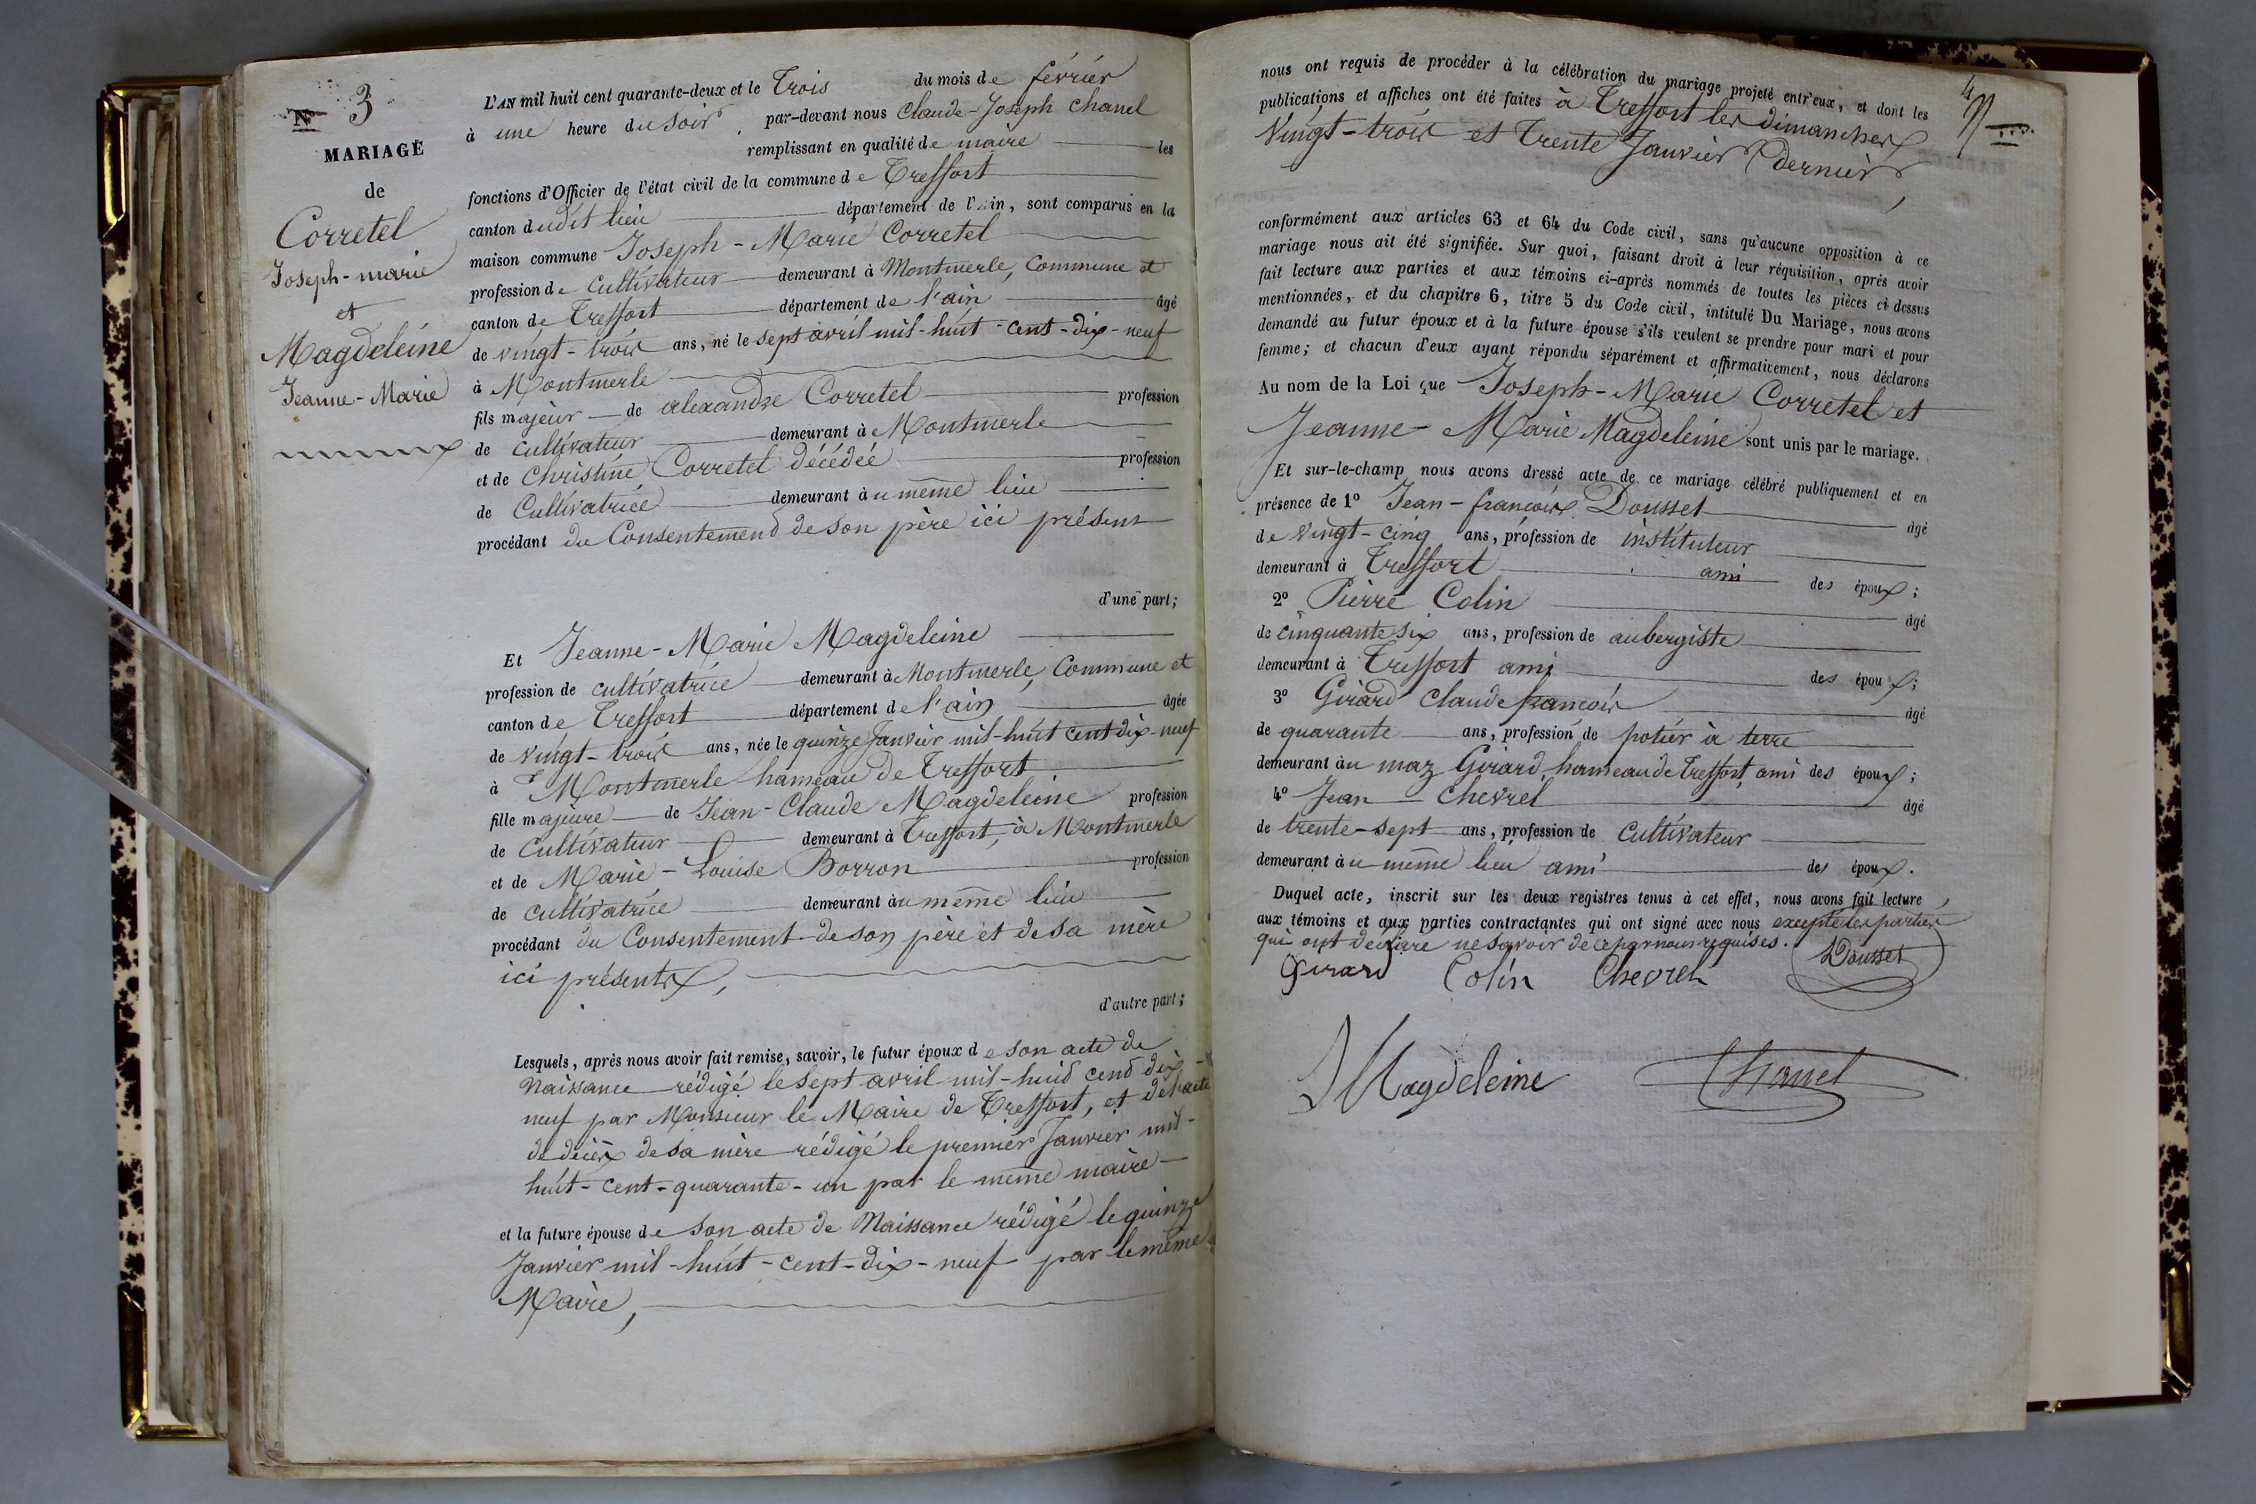 Nº 3
MARIAGE
de
Corretel
Joseph-marie
et
Magdeleine
Jeanne-Marie
L'AN mil huit cent quarante-deux et le Trois du mois de février
à une heure du soir, par-devant nous Claude-Joseph Chanel
remplissant en qualité de maire les
fonctions d'Officier de l'état civil de la commune de Treffort
canton dudit lieu département de l'Ain, sont comparus en la
maison commune Joseph-Marie Corretel
profession de Cultivateur demeurant à Montmerle, Commune et
canton de Treffort département de l'ain âgé
de vingt-trois ans, né le sept avril mil-huit-cent-dix-neuf
à Montmerle
fils majeur de alexandre Corretel profession
de cultivateur demeurant à Montmerle
et de Christine Corretel décédée profession
de Cultivatrice demeurant au même lieu
procédant du Consentement de son père ici présent
d'une part;
Et Jeanne-Marie Magdeleine
profession de cultivatrice demeurant à Montmerle, Commune et
canton de Treffort département de l'ain âgée
de vingt-trois ans, née le quinze Janvier mil-huit cent dix-neuf
à Montmerle hameau de Treffort
fille majeure de Jean-Claude Magdeleine profession
de Cultivateur demeurant à Treffort, à Montmerle
et de Marie-Louise Borron profession
de cultivatrice demeurant au même lieu
procédant du Consentement de son père et de sa mère
ici présents,
d'autre part;
Lesquels, après nous avoir fait remise, savoir, le futur époux de son acte de
Naissance rédigé le sept avril mil-huit cent dix-
neuf par Monsieur le Maire de Treffort, et de l'acte
de décès de sa mère rédigé le premier Janvier mil-
huit-cent-quarante-un par le même maire
et la future épouse de son acte de Naissance rédigé le quinze
Janvier mil-huit-cent-dix-neuf par le même
Maire,
4
nous ont requis de procéder à la célébration du mariage projeté entr'eux, et dont les
publications et affiches ont été faites à Treffort les dimanches
Vingt-trois et Trente Janvier dernier,
conformément aux articles 63 et 64 du Code civil, sans qu'aucune opposition à ce
mariage nous ait été signifiée. Sur quoi, faisant droit à leur réquisition, après avoir
fait lecture aux parties et aux témoins ci-après nommés de toutes les pièces ci-dessus
mentionnées, et du chapitre 6, titre 5 du Code civil, intitulé Du Mariage, nous avons
demandé au futur époux et à la future épouse s'ils veulent se prendre pour mari et pour
femme; et chacun d'eux ayant répondu séparément et affirmativement, nous déclarons
Au nom de la Loi que Joseph-Marie Corretel et
Jeanne-Marie Magdeleine sont unis par le mariage.
Et sur-le-champ nous avons dressé acte de ce mariage célébré publiquement et en
présence de 1º Jean-françois Dousset âgé
de Vingt-cinq ans, profession de instituteur
demeurant à Treffort ami des époux;
2º Pierre Colin âgé
de cinquante six ans, profession de aubergiste
demeurant à Treffort ami des époux;
3º Girard Claude françois âgé
de quarante ans, profession de potier à terre
demeurant au maz Girard, hameau de Treffort ami des époux;
4º Jean Chevrel âgé
de trente-sept ans, profession de Cultivateur
demeurant au même lieu ami des époux.
Duquel acte, inscrit sur les deux registres tenus à cet effet, nous avons fait lecture
aux témoins et aux parties contractantes qui ont signé avec nous excepté les parties
qui ont déclaré ne savoir de ce par nous requises.
Girard Colin Chevrel Dousset
Magdeleine Chanel